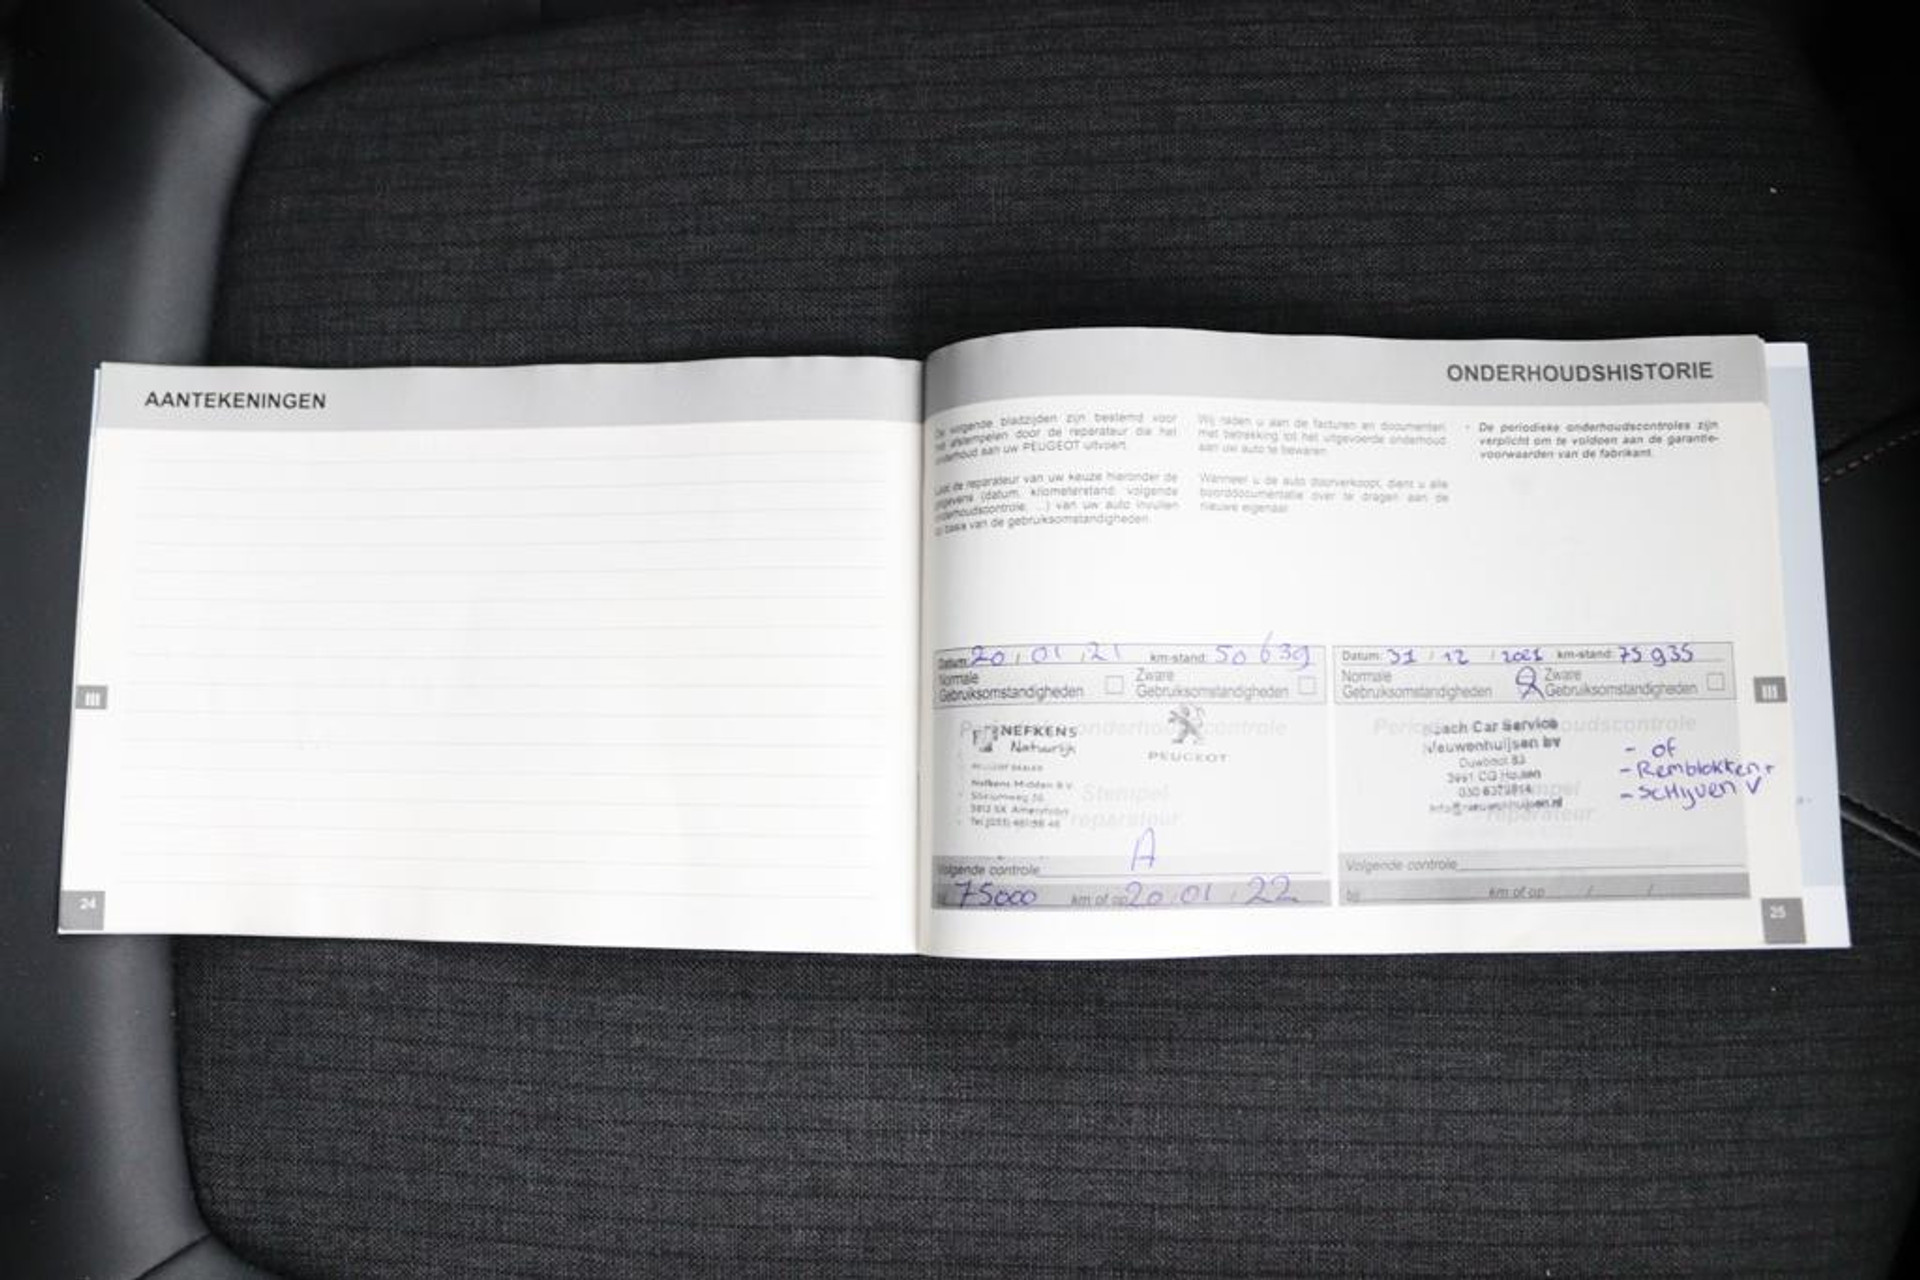 AANTEKENINGEN
III
24
ONDERHOUDSHISTORIE
De volgende bladzijden zijn bestemd voor
het afstempelen door de reparateur die het
onderhoud aan uw PEUGEOT uitvoert.
Laat de reparateur van uw keuze hieronder de
gegevens (datum, kilometerstand, volgende
onderhoudscontrole, ...) van uw auto invullen
op basis van de gebruiksomstandigheden.
Wij raden u aan de facturen en documenten
met betrekking tot het uitgevoerde onderhoud
aan uw auto te bewaren.
Wanneer u de auto doorverkoopt, dient u alle
boorddocumentatie over te dragen aan de
nieuwe eigenaar.
• De periodieke onderhoudscontroles zijn
verplicht om te voldoen aan de garantie-
voorwaarden van de fabrikant.
Datum: 20 / 01 / 21 km-stand: 50 639
Normale
Gebruiksomstandigheden
Zware
Gebruiksomstandigheden
Periodieke onderhoudscontrole
NEFKENS
Natuurlijk
PEUGEOT
PEUGEOT DEALER
Nefkens Midden B.V.
Stempel
reparateur
A
Volgende controle
bij 75000 km of op 20 / 01 / 22
Datum: 31 / 12 / 2021 km-stand: 75 935
Normale
Gebruiksomstandigheden
Zware
Gebruiksomstandigheden
Periodieke onderhoudscontrole
Bosch Car Service
Nieuwenhuijsen bv
Stempel
reparateur
- of
- Remblokken +
- scHyven V
Volgende controle
bij km of op / /
III
25